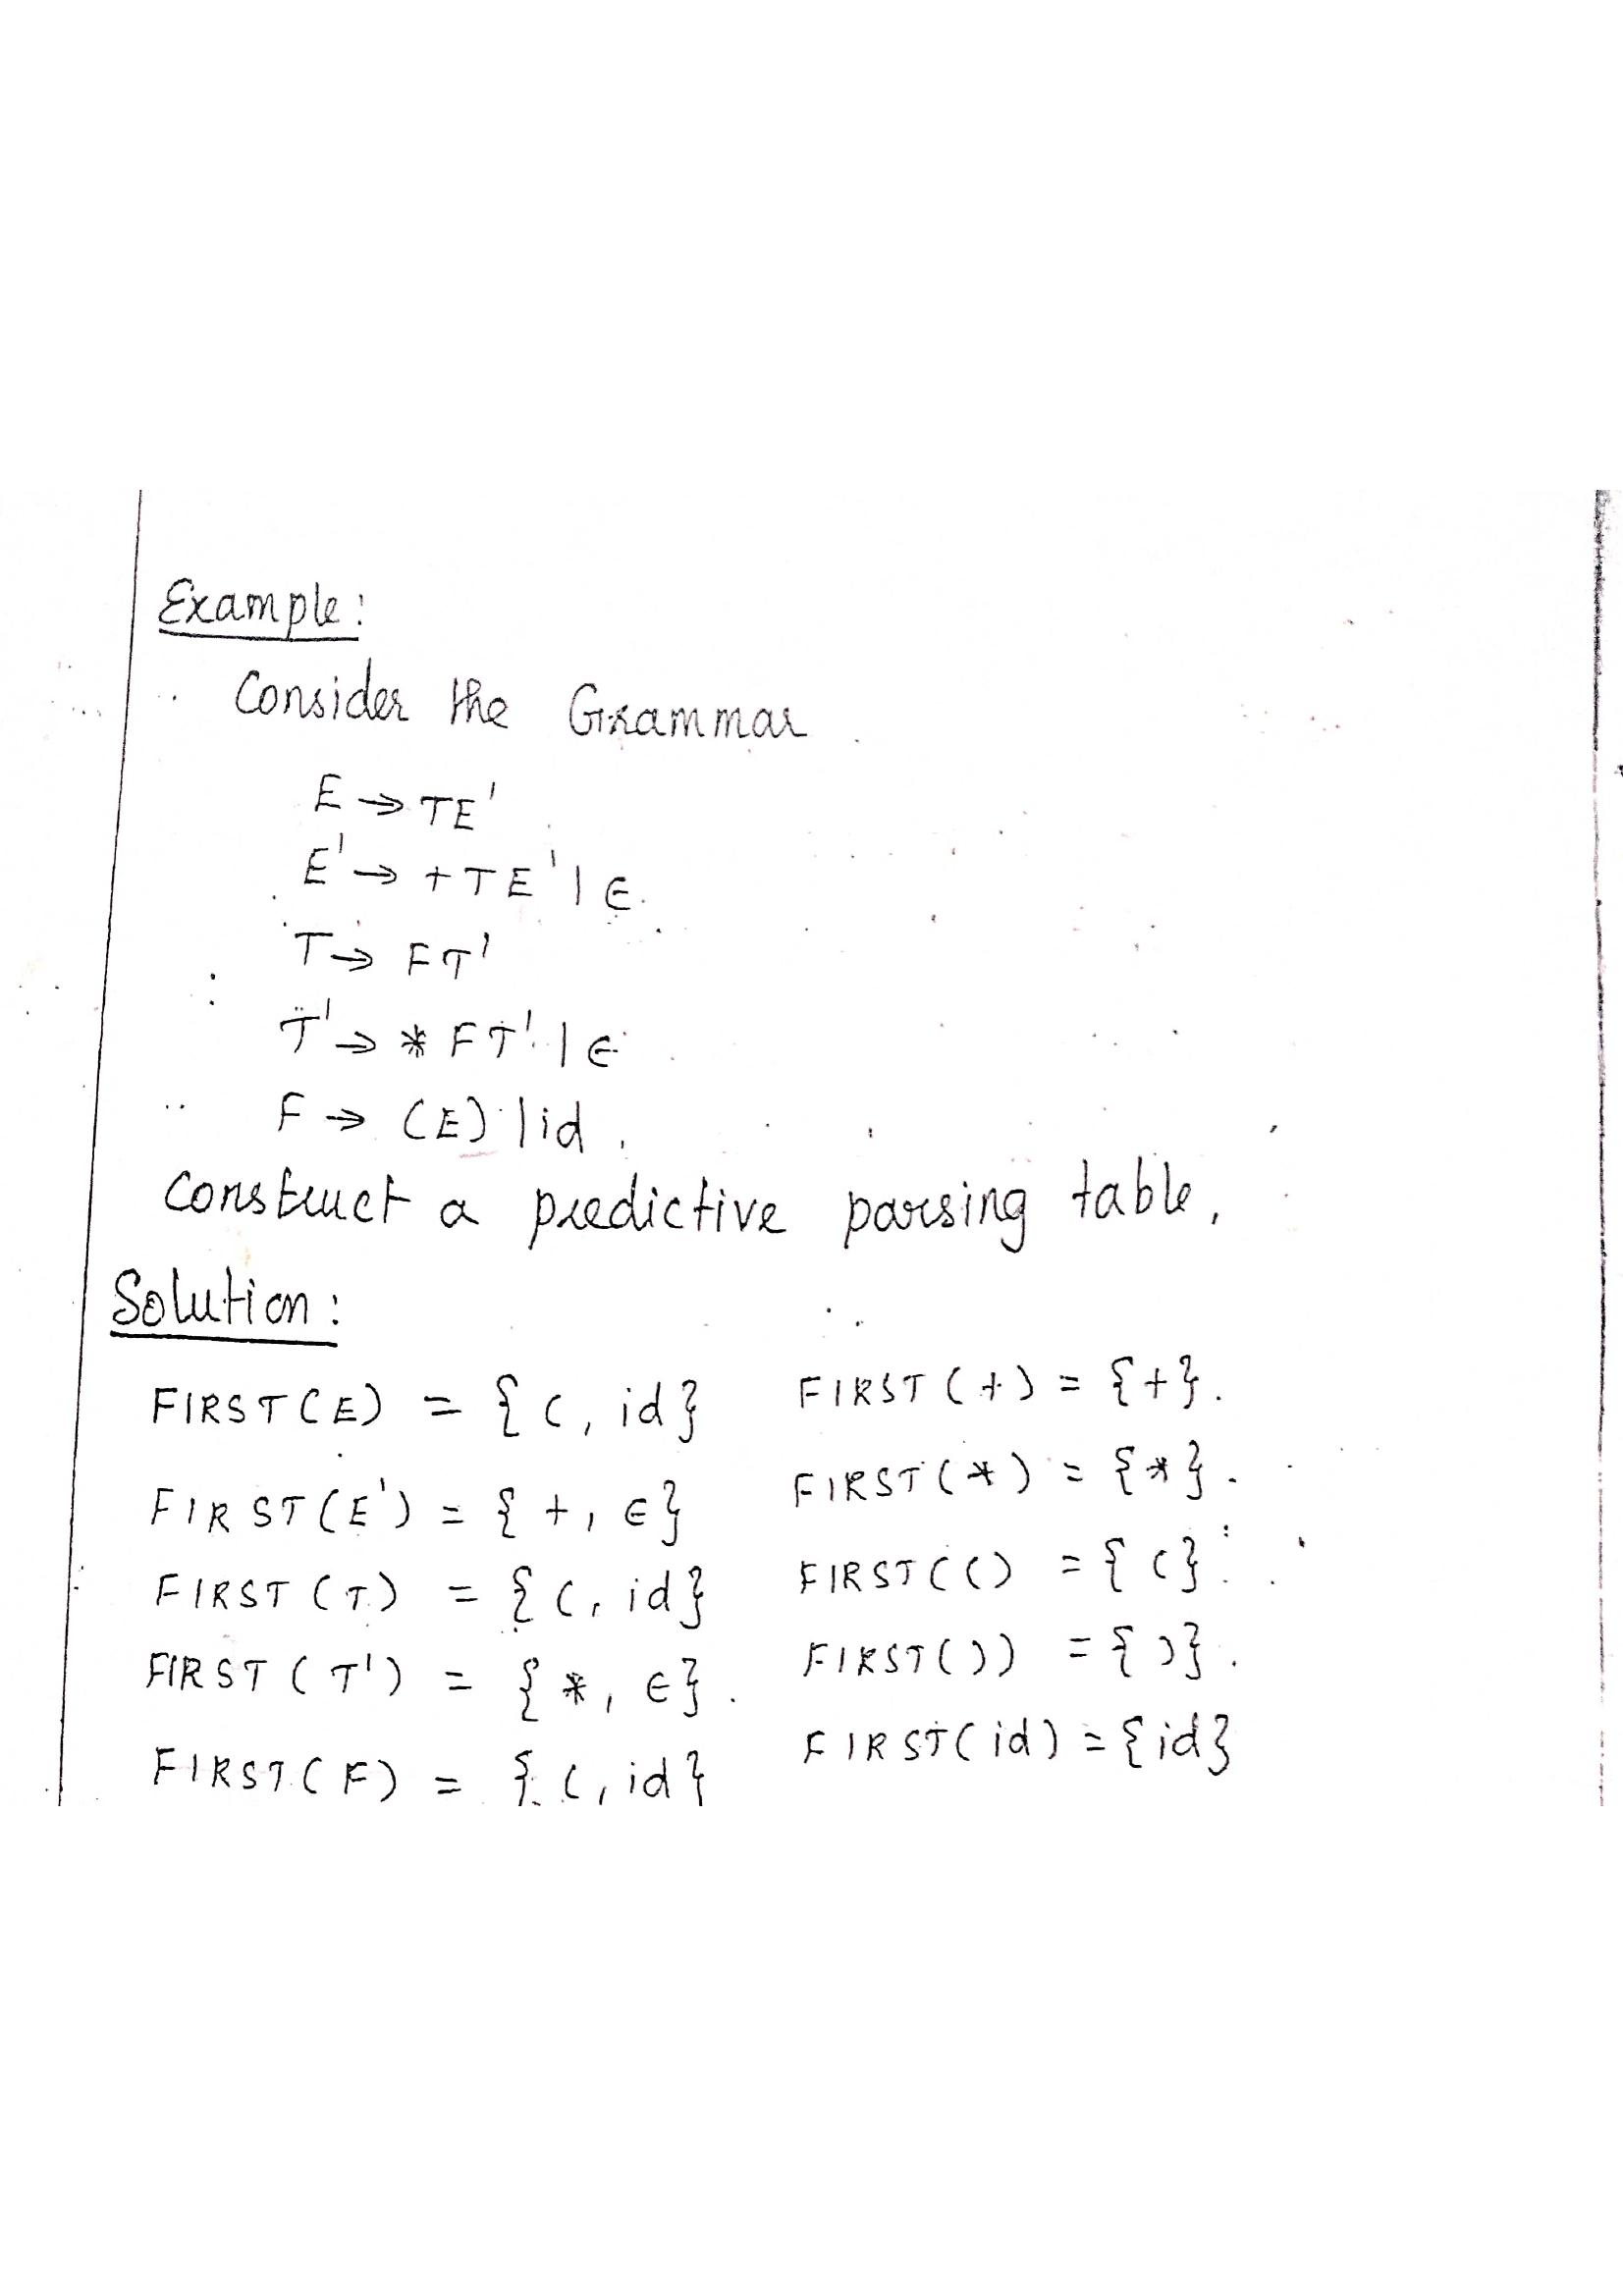 Example:
Consider the Grammar
E → TE'
E' → +TE' | ∈.
T → FT'
T' → *FT' | ∈
F → (E) | id.
Construct a predictive parsing table.
Solution:
FIRST(E) = {(, id} FIRST(+) = {+}.
FIRST(E') = {+, ∈} FIRST(*) = {*}.
FIRST(T) = {(, id} FIRST(() = {(}.
FIRST(T') = {*, ∈}. FIRST()) = {)}.
FIRST(F) = {(, id} FIRST(id) = {id}